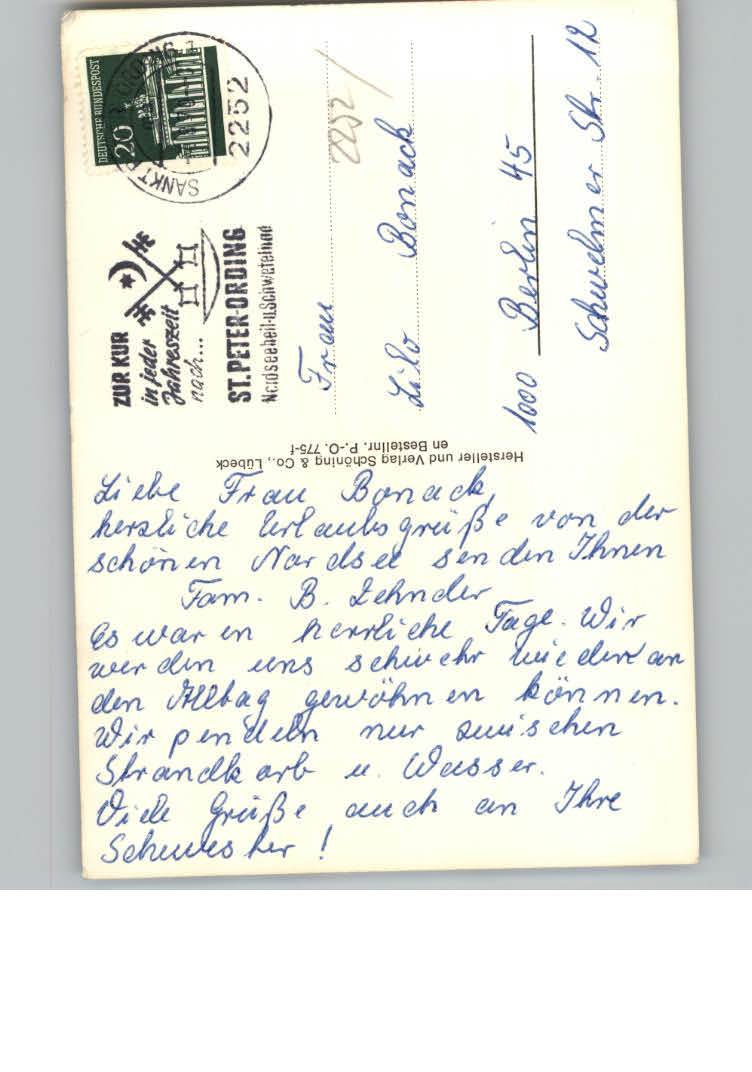 DEUTSCHE BUNDESPOST
20
SANKT
ORDING 1
2252
ZUR KUR
in jeder
Jahreszeit
nach...
ST. PETER-ORDING
Nordseeheil-u. Schwefelbad
2252 /
Frau
Lilo Bonack
1000 Berlin 45
Schwelmer Str. 12
Hersteller und Verlag Schöning & Co., Lübeck
en Bestellnr. P.-O. 775-f
Liebe Frau Bonack,
herzliche Urlaubsgrüße von der
schönen Nordsee senden Ihnen
Fam. B. Zehnder
Es waren herrliche Tage. Wir
werden uns schwehr wieder an
den Alltag gewöhnen können.
Wir pendeln nur zwischen
Strandkorb u. Wasser.
Viele Grüße auch an Ihre
Schwester!